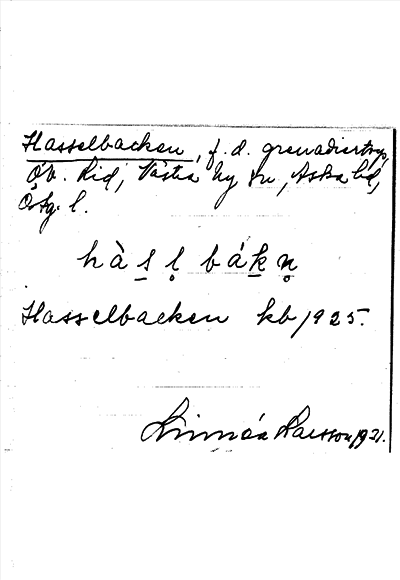 Hasselbacken, f. d. grenadiertorp,
Öv. Lid, Västra Ny sn, Aska hd,
Östg. l.
hàs̲l̥ bák̲n̥
Hasselbacken kb 1925.
Linnéa Larsson 1931.